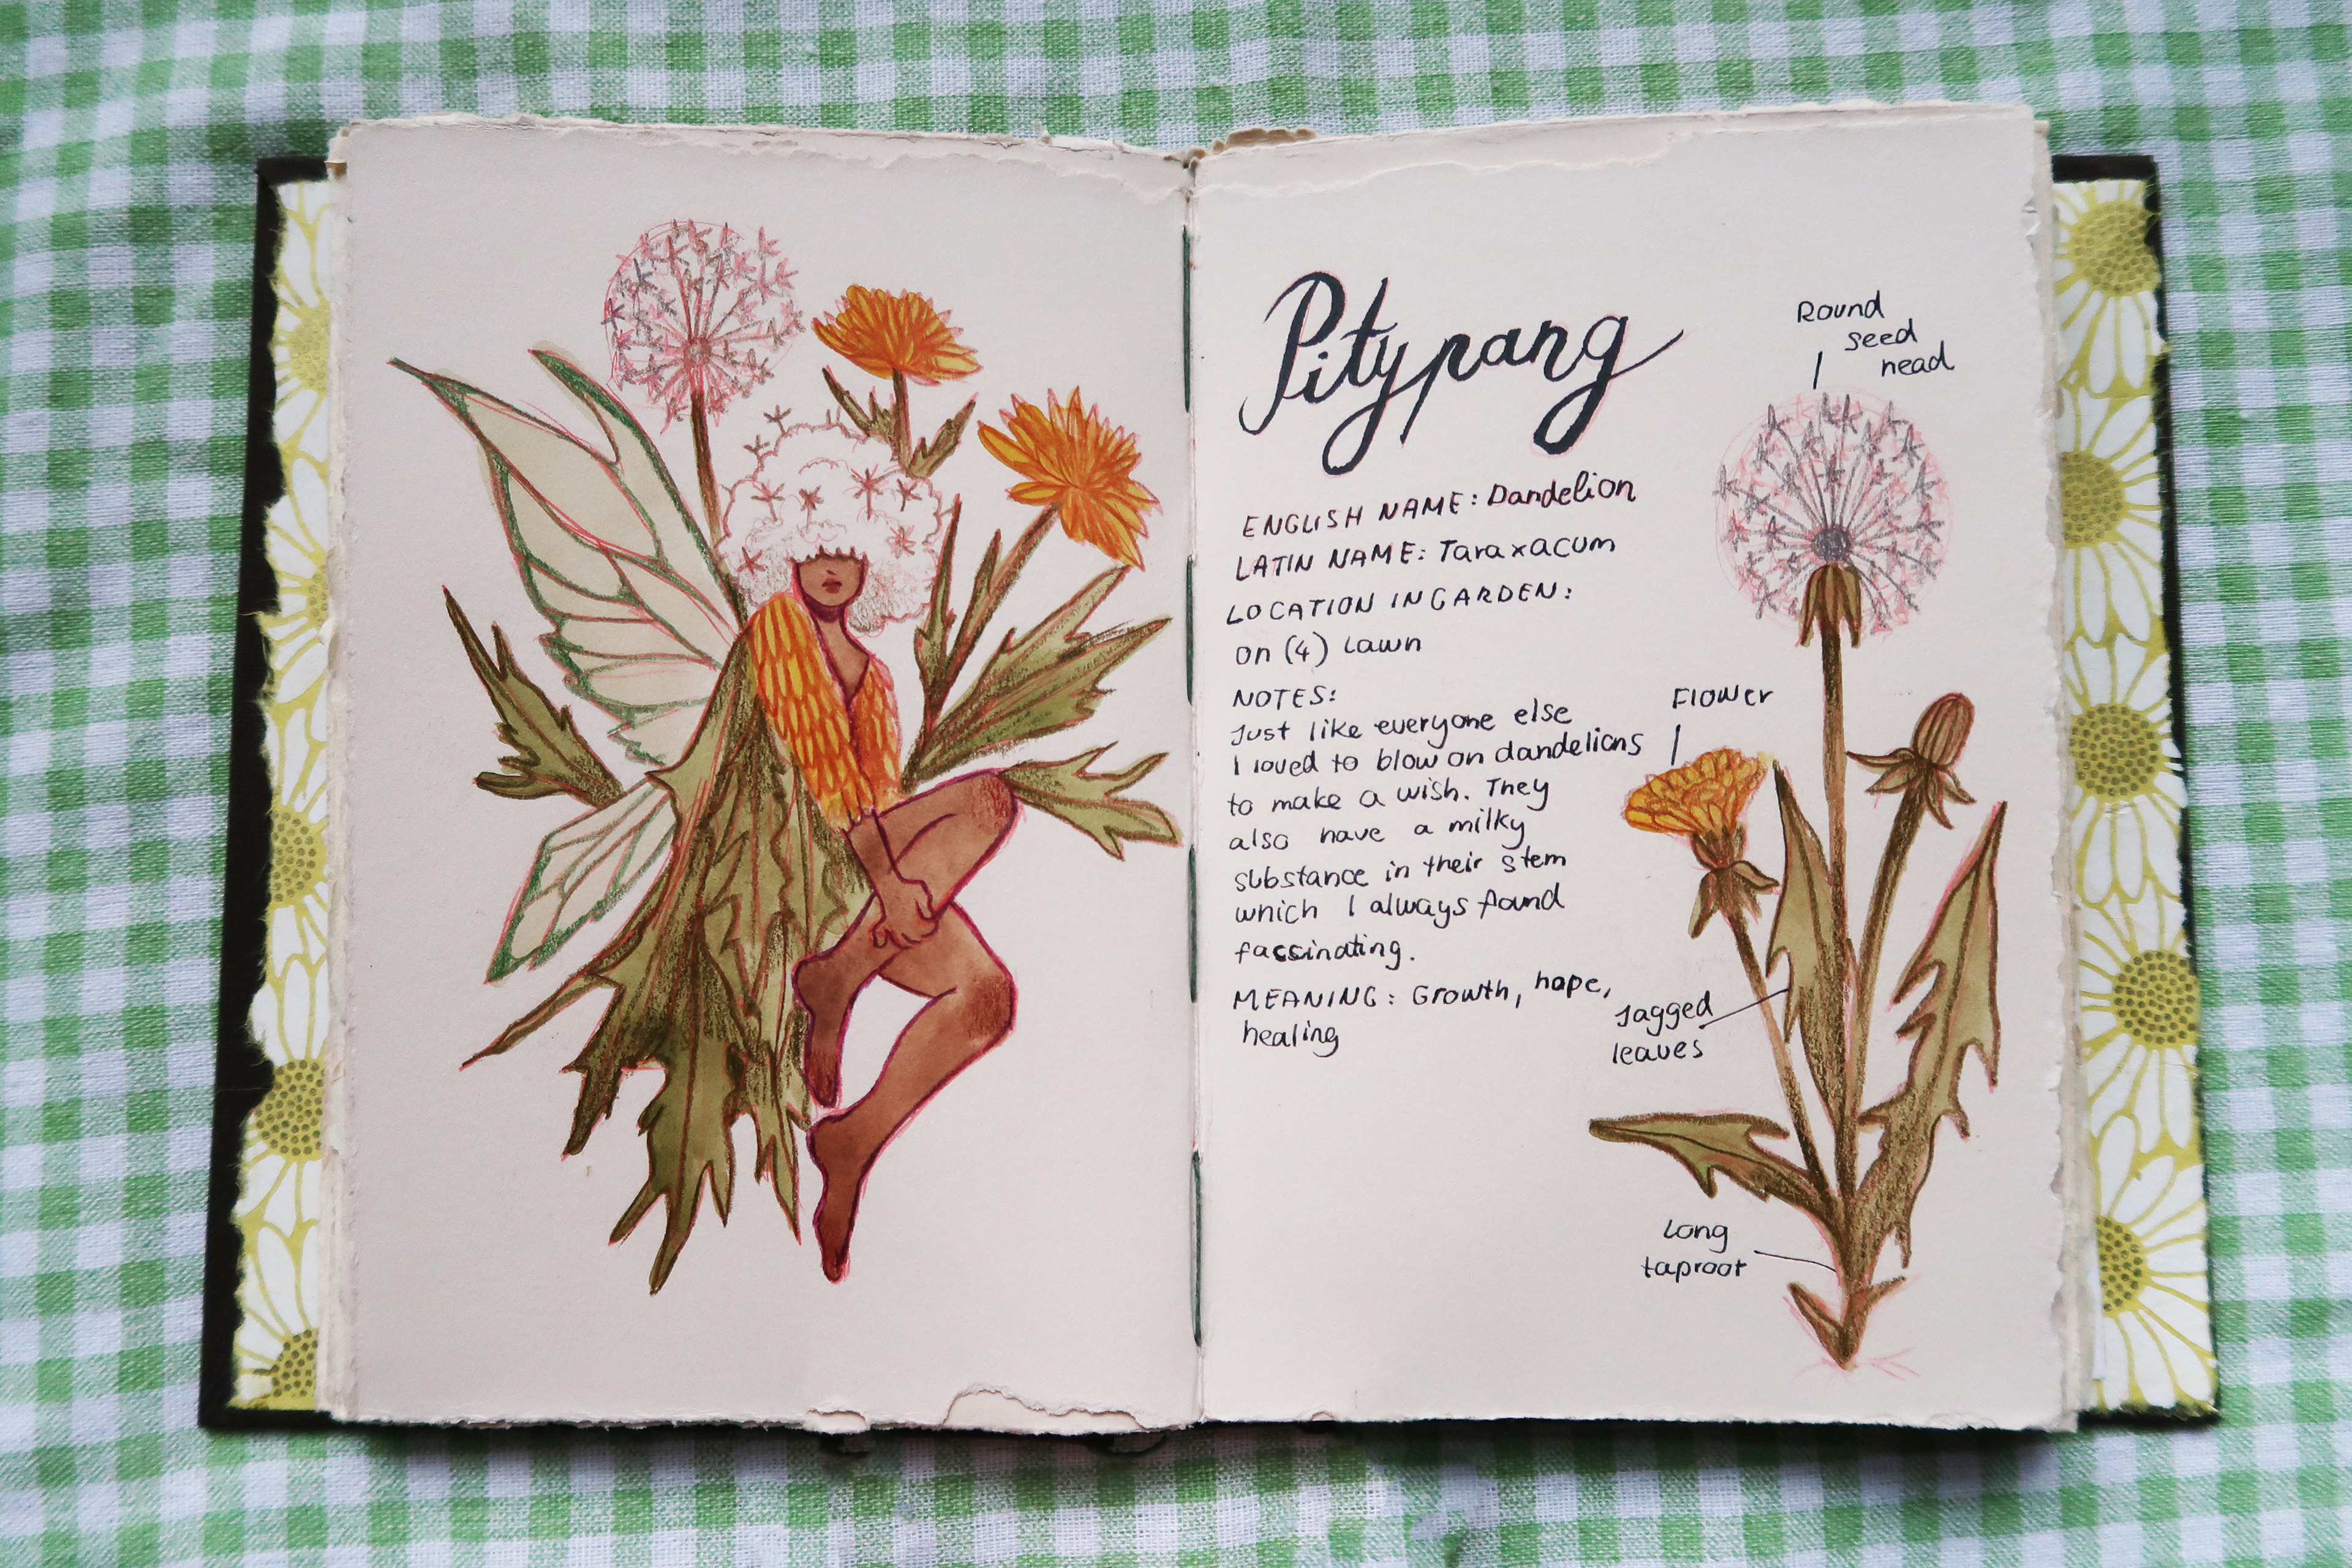 Pitypang
ENGLISH NAME: Dandelion
LATIN NAME: Taraxacum
LOCATION IN GARDEN:
on (4) Lawn
NOTES:
Just like everyone else
I loved to blow on dandelions
to make a wish. They
also have a milky
substance in their stem
which I always found
fascinating.
MEANING: Growth, hope,
healing
Round
seed
head
Flower
Jagged
leaves
Long
taproot